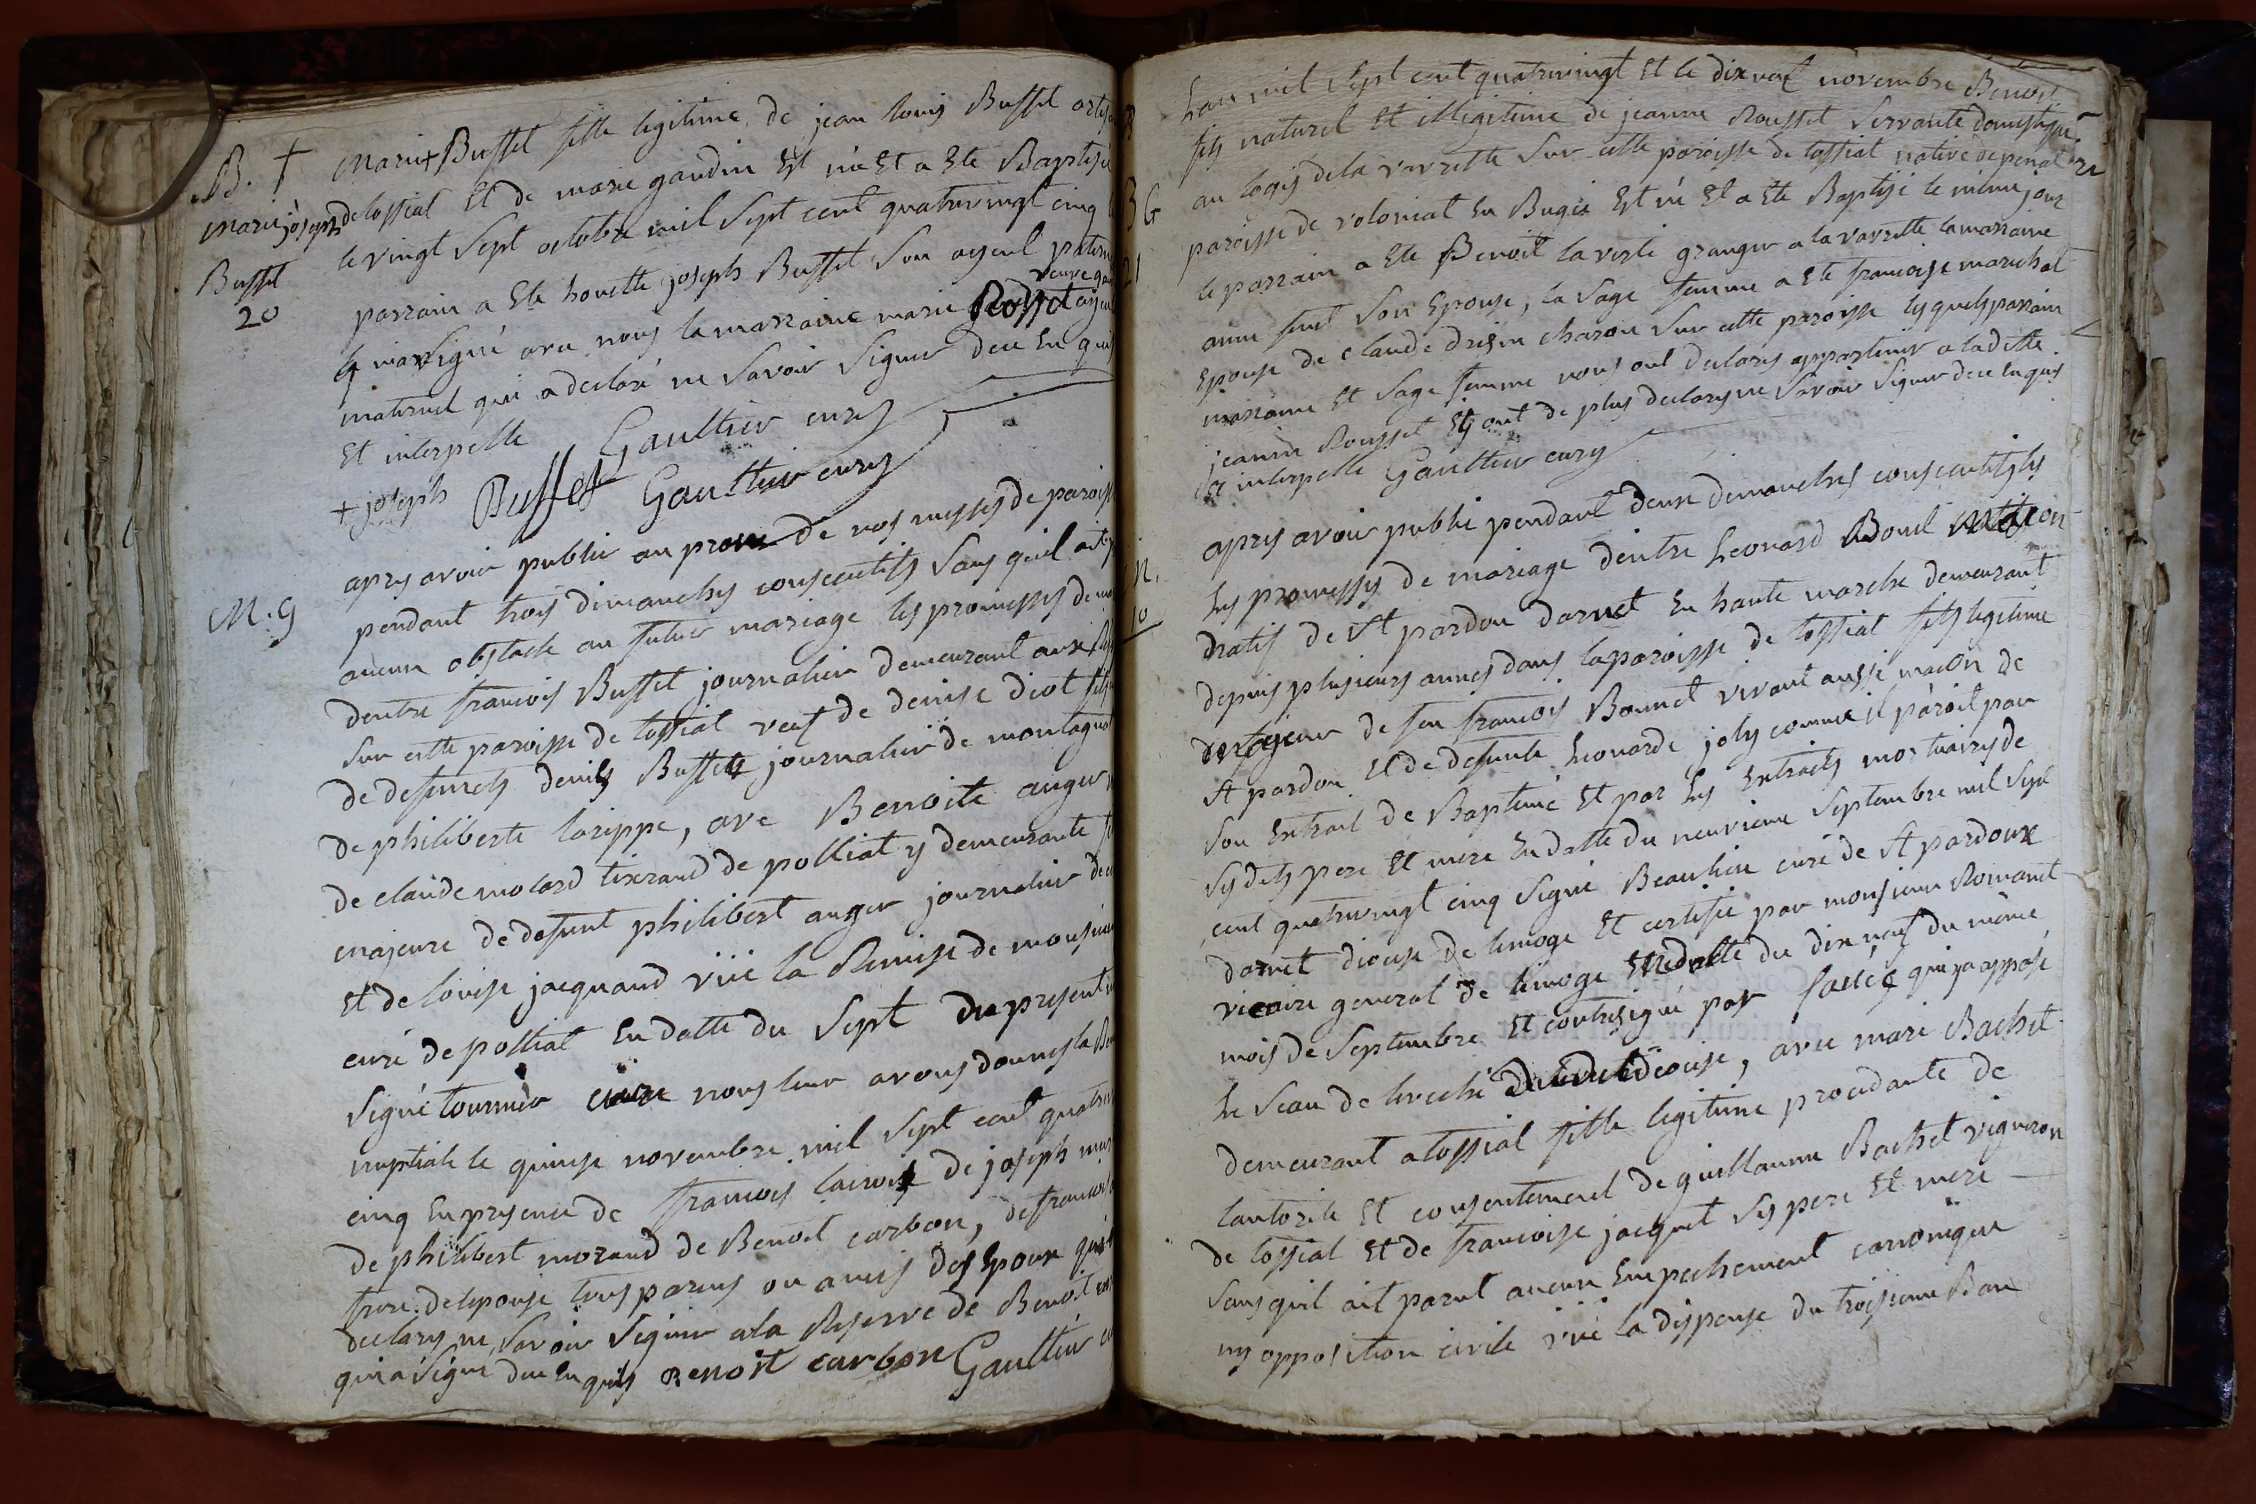 B. †
marie joseph
Buffet
20
marie + Buffet fille legitime de jean louis Buffet
de tossiat et de marie gaudin est née et a ete Baptisée
le vingt sept octobre mil sept cent quatrevingt cinq
parrain a ete honette joseph Buffet son ayeul patern
signé avec nous la marraine marie Rosset
veuve
maternel qui a declaré ne savoir signer de ce enquis
et interpelle Gaultier curé
+ joseph Buffet Gaultier curé
M. 9
apres avoir publié au prone de nos messes de paroiss
pendant trois dimanches consecutifs sans quil ait
aucun obstacle au futur mariage les promesses de
dentre francois Buffet journalier demeurant aux
sur cette paroisse de tossiat veuf de denise diot fils
de defuncts denis Buffet journalier de montagnat
de philiberte larippe, avec Benoite auger
de claude molard tixerand de polliat y demeurante
majeure de defunt philibert auger journalier de
et de louise jacquand vüe la Remise de monsieur
curé de polliat en datte du sept du present
signé tournier curé nous leur avons donnés la
nuptiale le quinze novembre mil sept cent quatre
cinq en presence de francois lacroix de joseph
de philibert morand de Benoit carbon, de francois
frere de lepouse tous parens ou amis des epoux qui
declarés ne savoir signer a la Reserve de Benoit
qui a signé de ce enquis Benoit carbon Gaultier
B
21
Lan mil sept cent quatrevingt et le dix neuf novembre Benoit
fils naturel et illegitime de jeanne Rousset servante domestique
au logis de la vavrette sur cette paroisse de tossiat native de
paroisse de volognat en Bugei est né et a ete Baptisé le même jour
le parrain a ete Benoit granger a la vavrette la marraine
anne son epouse, la sage femme a ete francoise marechal
epouse de claude charon sur cette paroisse lesquels parrain
marraine et sage femme nous ont declarés appartenir a ladite
jeanne Rousset et ont de plus declarés ne savoir signer de ce enquis
et interpelle Gaultier curé
M.
10
apres avoir publié pendant deux dimanches consecutifs
les promesses de mariage dentre Leonard Bonnet macon
natif de St pardou darnet en haute marche demeurant
depuis plusieurs années dans la paroisse de tossiat fils legitime
et majeur de feu francois Bonnet vivant aussi macon de
St pardou et de defunte Leonarde joly comme il paroit par
son extrait de Baptême et par les extraits mortuaires de
ses dits pere et mere en datte du neuvieme septembre mil sept
cent quatrevingt cinq signé Beaulieu curé de St pardoux
darnet diocese de limoge et certifié par monsieur Romanet
vicaire general de limoge en datte du dix neuf du même
mois de septembre et contresigné par qui y a apposé
le sceau de leveché dudit diocese, avec marie Bachet
demeurant a tossiat fille legitime procedante de
lautorité et consentement de guillaume Bachet vigneron
de tossiat et de francoise jacquet ses pere et mere
sans quil ait parut aucun empechement canonique
ny opposition civile vüe la dispense du troisieme Ban